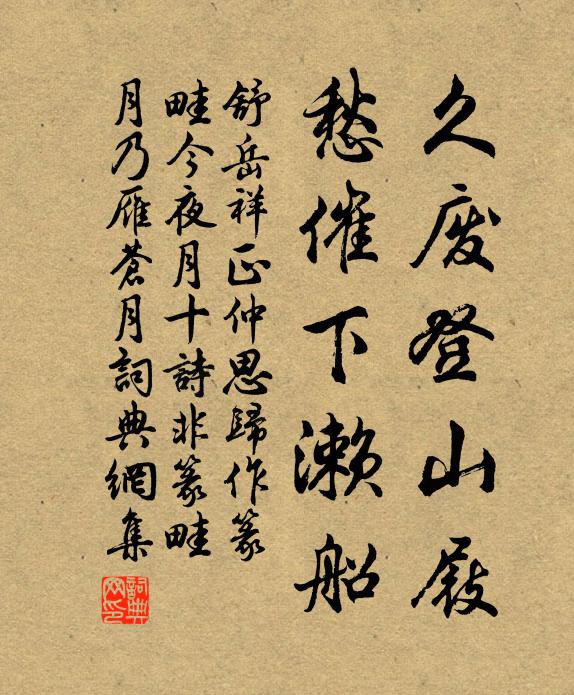 久废登山屐
愁催下濑船
舒岳祥正仲思歸作篆
畦今夜月十詩非篆畦
月乃雁蒼月詞典網集
詞典网印